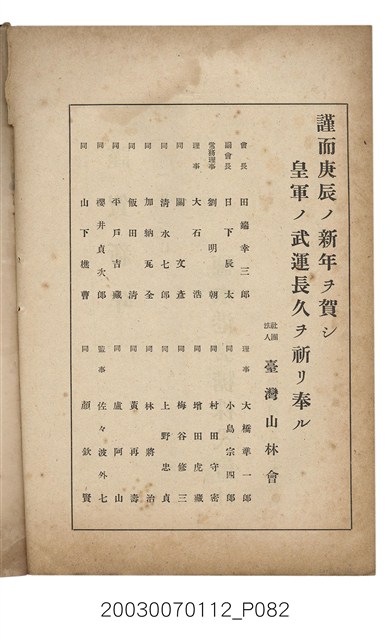 謹而庚辰ノ新年ヲ賀シ
皇軍ノ武運長久ヲ祈リ奉ル
社團法人 臺灣山林會
會長 田端幸三郎
副會長 日下辰太
常務理事 劉明朝
理事 大石浩
同 關文彥
同 清水七郎
同 加納瓦全
同 飯田清
同 平戸吉藏
同 櫻井貞次郎
同 山下樵曹
理事 大橋準一郎
同 小島宗四郎
同 村田守密
同 增田虎藏
同 梅谷修三
同 上野忠貞
同 林將治
同 黃再壽
同 盧阿山
監事 佐々波外七
同 顏欽賢
20030070112_P082